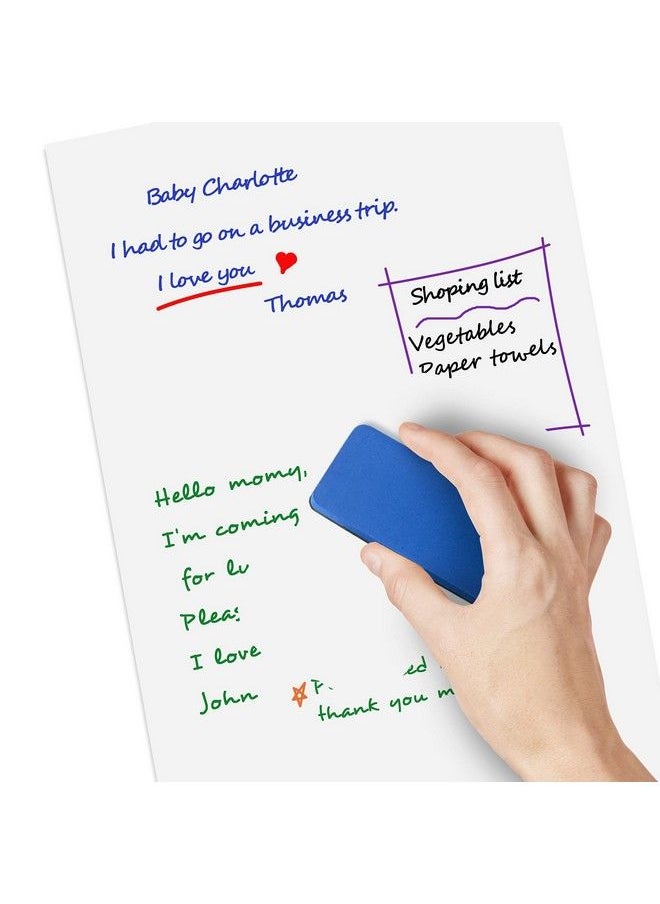 Baby Charlotte
I had to go on a business trip.
I love you
Thomas
Shoping list
Vegetables
Paper towels
Hello momy,
I'm coming
for lu
Pleas
I love
John
thank you m